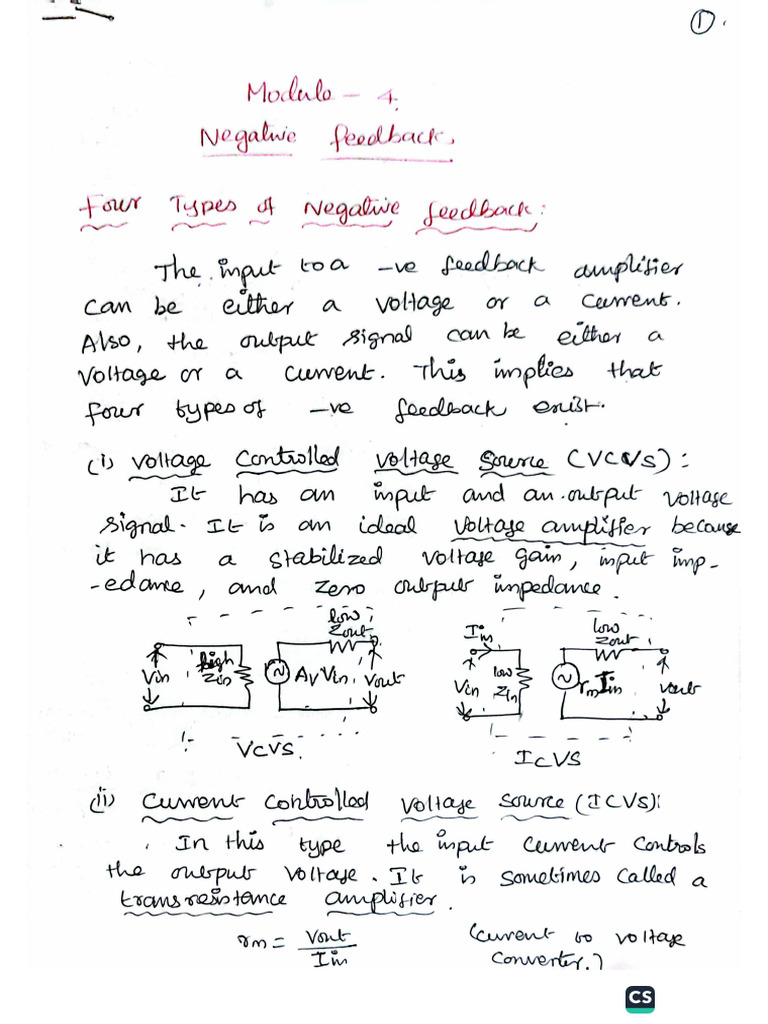 1.
Module - 4.
Negative feedback.
Four Types of Negative feedback:
The input to a -ve feedback amplifier
can be either a voltage or a current.
Also, the output signal can be either a
voltage or a current. This implies that
four types of -ve feedback exist.
(i) Voltage Controlled Voltage Source (VCVS):
It has an input and an output voltage
signal. It is an ideal voltage amplifier because
it has a stabilized voltage gain, input imp-
-edance, and zero output impedance.
low Zout
Vin
high Zin
Av Vin
Vout
VCVS.
Iin
low Zout
Vin
low Zin
rm Iin
Vout
ICVS
(ii) Current Controlled Voltage Source (ICVS):
In this type the input current controls
the output voltage. It is sometimes called a
transresistance amplifier.
rm = Vout / Iin (current to voltage
converter.)
CS